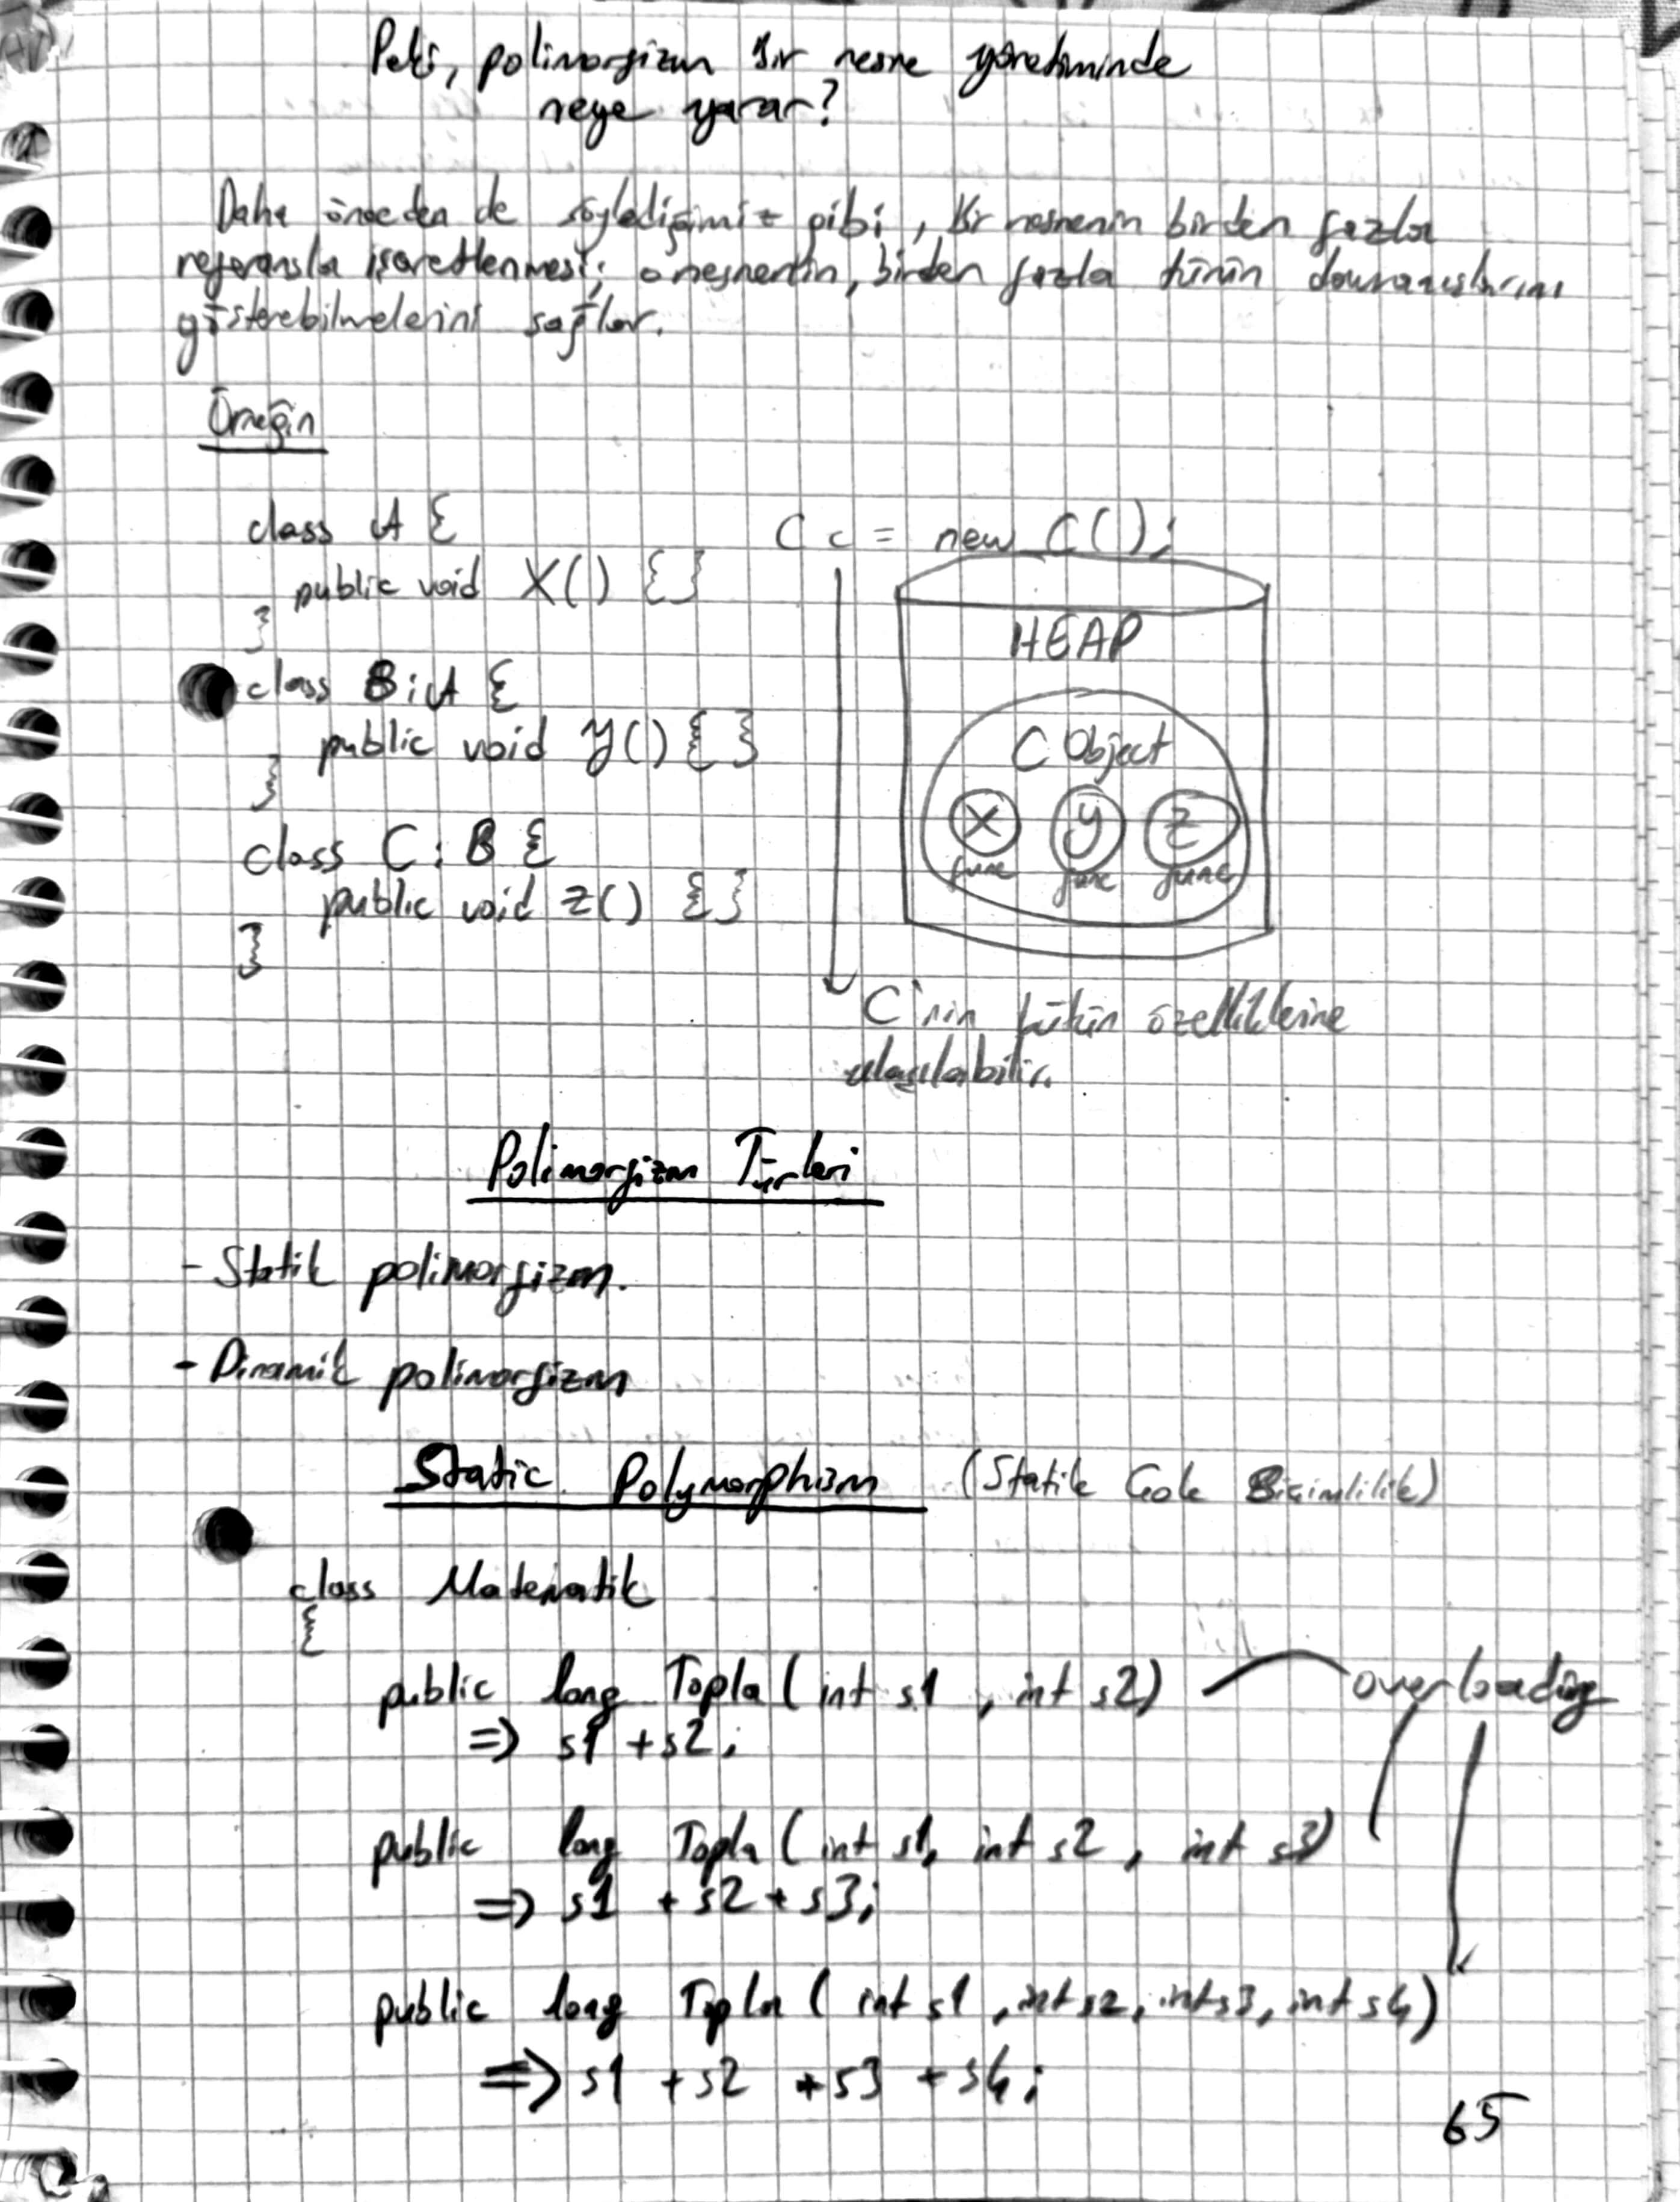 Peki, polimorfizm bir nesne yönetiminde
neye yarar?
Daha önceden de söylediğimiz gibi, bir nesnenin birden fazla
referansla işaretlenmesi; o nesnenin, birden fazla türün davranışlarını
gösterebilmelerini sağlar.
Örneğin
class A {
public void X() {}
}
class B : A {
public void Y() {}
}
class C : B {
public void Z() {}
}
C c = new C();
HEAP
C Object
X Y Z
func func func
C'nin bütün özelliklerine
ulaşılabilir.
Polimorfizm Türleri
- Statik polimorfizm.
- Dinamik polimorfizm
Static Polymorphism (Statik Çok Biçimlilik)
class Matematik
{
public long Topla (int s1, int s2) overloading
=> s1 + s2;
public long Topla (int s1, int s2, int s3)
=> s1 + s2 + s3;
public long Topla (int s1, int s2, int s3, int s4)
=> s1 + s2 + s3 + s4;
65